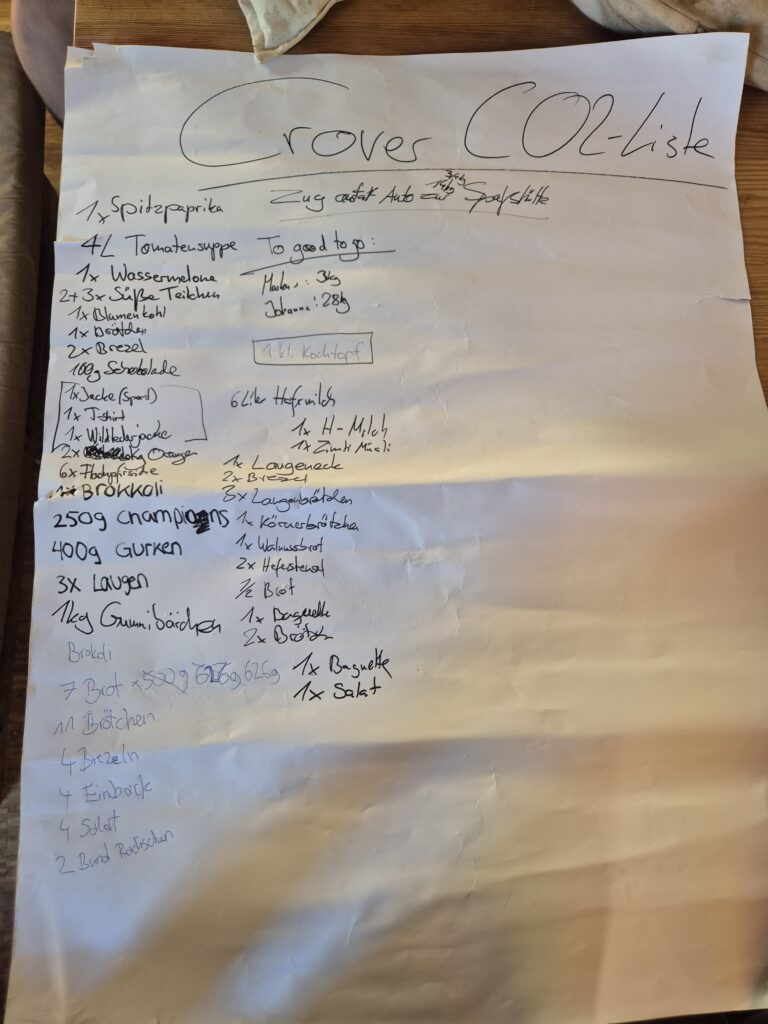 Crover CO2-Liste
Zug anstatt Auto zur Spaßstätte
14kg 34kg
1x Spitzpaprika
4L Tomatensuppe
1x Wassermelone
2+3x Süße Teilchen
1x Blumenkohl
1x Brötchen
2x Brezel
100g Schokolade
1x Jacke (Sport)
1x T-shirt
1x Wildlederjacke
2x Orangen
6x Flachpfirsiche
1x Brokkoli
250g Champions
400g Gurken
3x Laugen
1kg Gummibärchen
Brokoli
7 Brot x550g 626g, 626g
11 Brötchen
4 Brezeln
4 Einback
4 Salat
2 Bund Radischen
To good to go:
3kg
Johanna: 28kg
1 kl. Kochtopf
6 Liter Hafermilch
1x H-Milch
1x Zimt Müsli
1x Laugeneck
2x Brezel
3x Laugenbrötchen
1x Körnerbrötchen
1x Walnussbrot
2x
1/2 Brot
1x Baguette
2x Brötchen
1x Baguette
1x Salat